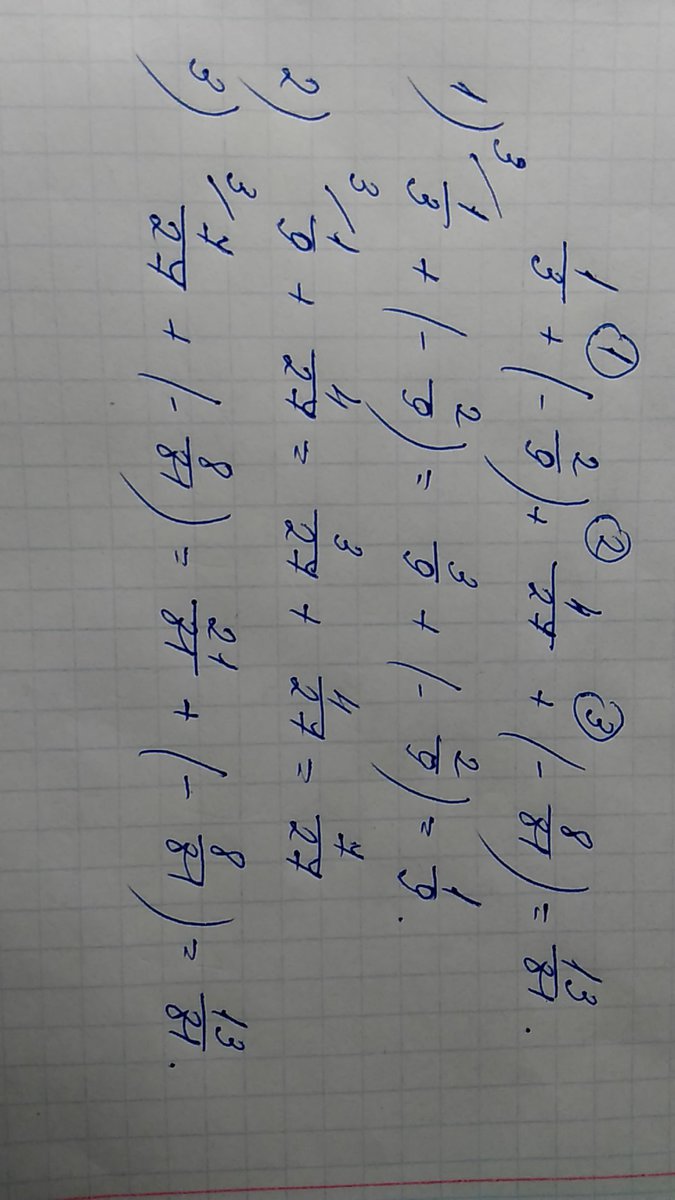 1/3 + (- 2/9) + 4/27 + (- 8/81) = 13/81.
① ② ③
1) ³/ 1/3 + (- 2/9) = 3/9 + (- 2/9) = 1/9.
2) ³/ 1/9 + 4/27 = 3/27 + 4/27 = 7/27
3) ³/ 7/27 + (- 8/81) = 21/81 + (- 8/81) = 13/81.